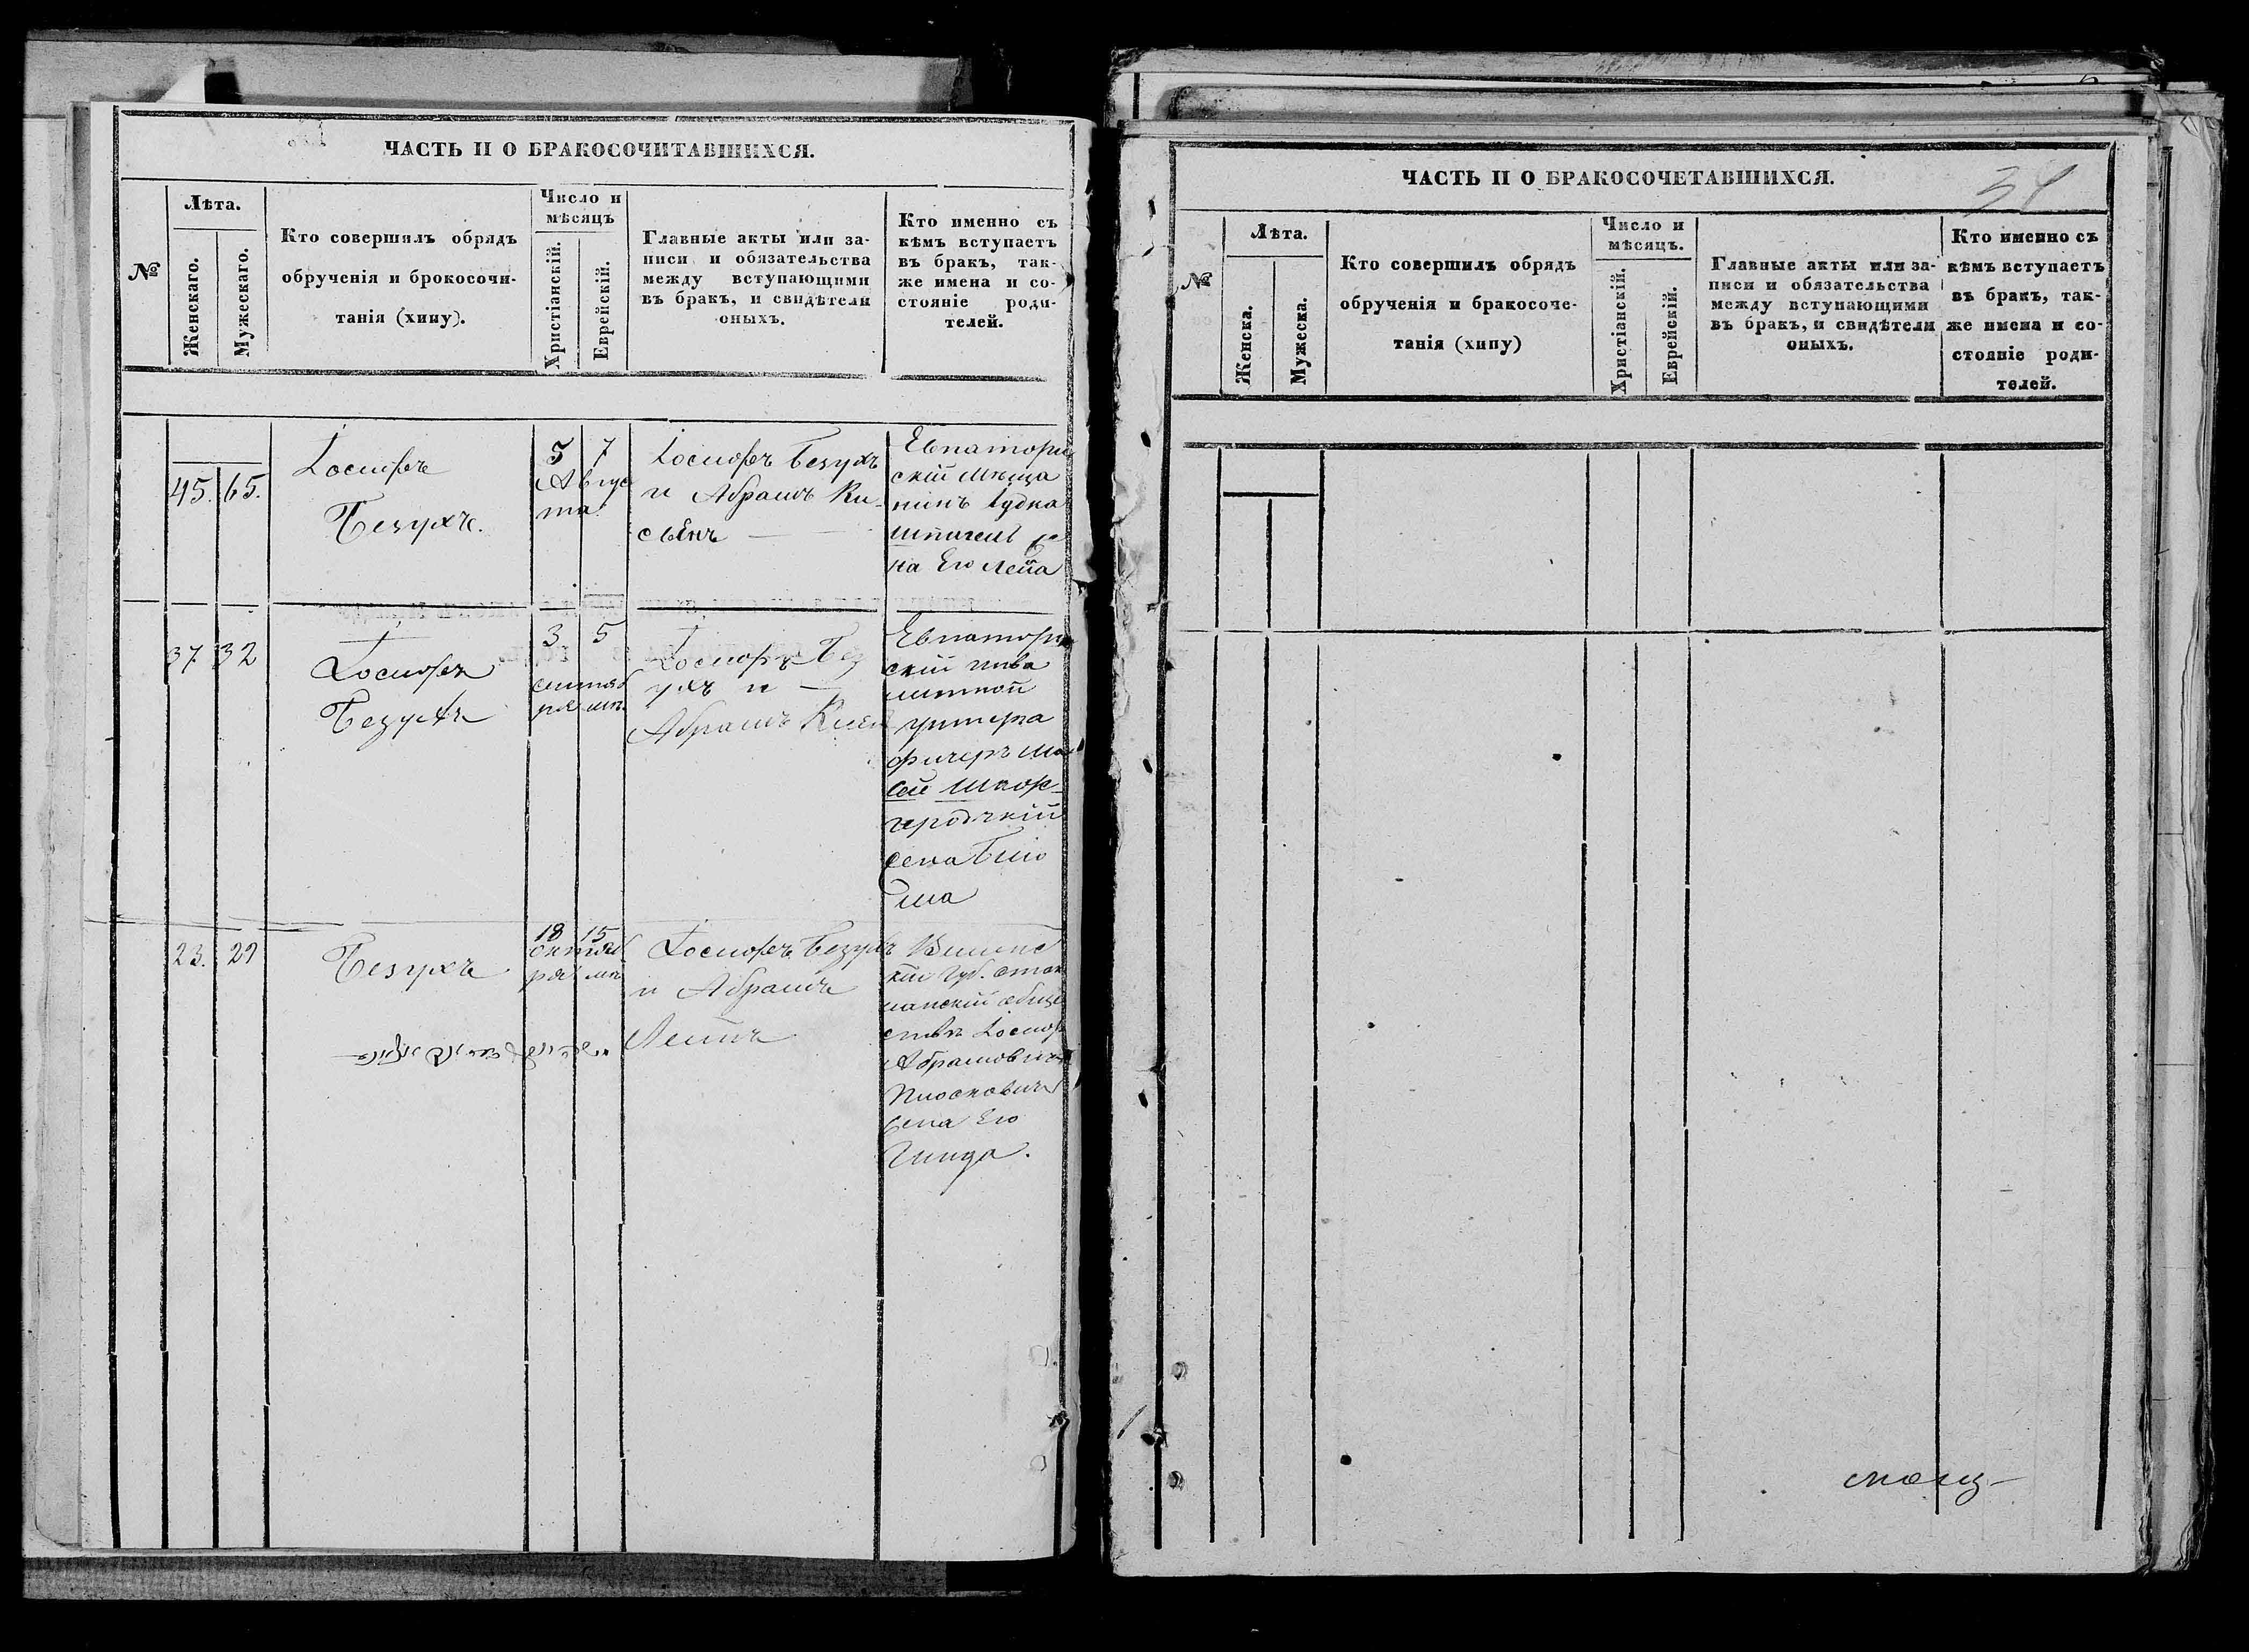 ЧАСТЬ II О БРАКОСОЧИТАВШИХСЯ.
№
Лѣта.
Женскаго.
Мужескаго.
Кто совершилъ обрядъ
обрученія и брокосочи-
танія (хипу).
Число и
мѣсяцъ
Христіанскій.
Еврейскій.
Главные акты или за-
писи и обязательства
между вступающими
въ бракъ, и свидѣтели
оныхъ.
Кто именно съ
кѣмъ вступаетъ
въ бракъ, так-
же имена и со-
стояніе роди-
телей.
45. 65.
Іосифъ
Безухъ.
5 7
Авгус
та
Іосифъ Безухъ
и Абрамъ Ки-
сѣнъ
Евпатори
скій мѣща
нинъ Іудка
на Его Лейа
37 32
Іосифъ
Безухъ
3 5
сентяб
ря мѣ.
Іосифъ Без
ухъ и
Абрамъ
Евпатори
скій инва
литной
унтера
фицеръ Мо
сей Шкор-
23. 29
Безухъ
18 15
октяб
ря мѣ
Іосифъ Безухъ
и Абрамъ
Виленс
кій Губ.
Іосиф
Абрамович
Пиоскович
жена Его
Гинда.
ЧАСТЬ II О БРАКОСОЧЕТАВШИХСЯ.
№
Лѣта.
Женска.
Мужеска.
Кто совершилъ обрядъ
обрученія и бракосоче-
танія (хипу)
Число и
мѣсяцъ.
Христіанскій.
Еврейскій.
Главные акты или за-
писи и обязательства
между вступающими
въ бракъ, и свидѣтели
оныхъ.
Кто именно съ
кѣмъ вступаетъ
въ бракъ, так-
же имена и со-
стояніе роди-
телей.